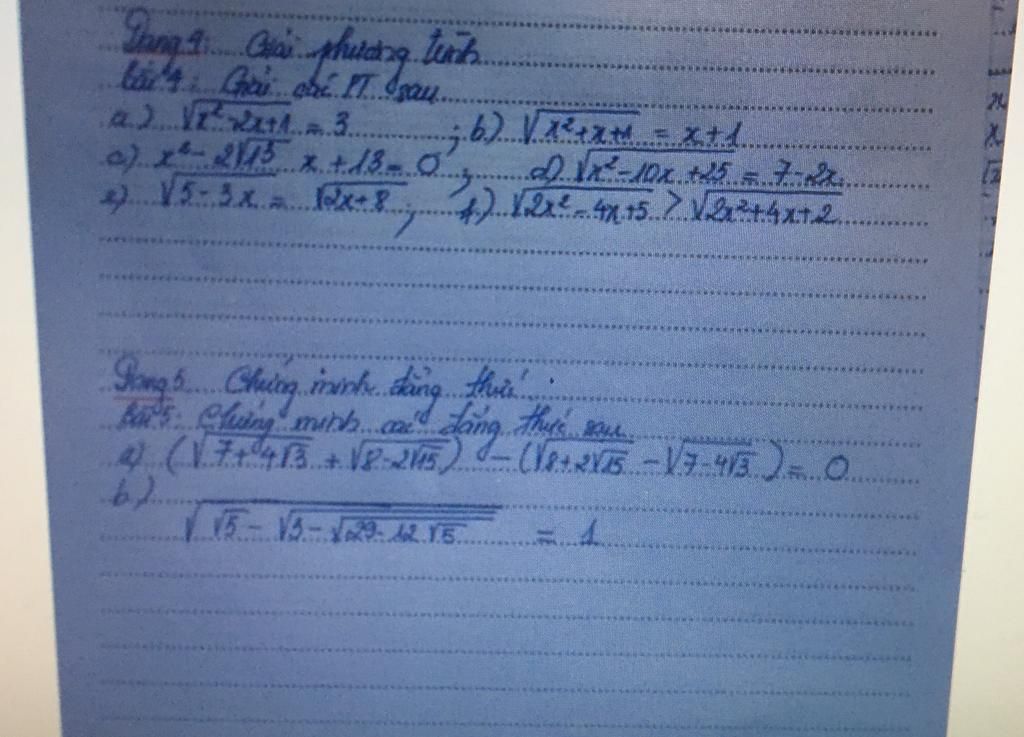 Dạng 4: Giải phương trình
Bài 4: Giải các PT sau
a) √(x² - 2x + 1) = 3 ; b) √(x² + x + 1) = x + 1
c) x² - 2√13 x + 13 = 0 ; d) √(x² - 10x + 25) = 7 - 2x
e) √(5 - 3x) = √(2x + 8) ; f) √(2x² - 4x + 5) > √(2x² + 4x + 2)
Dạng 5 Chứng minh đẳng thức.
Bài 5: Chứng minh các đẳng thức sau
a) (√(7 + 4√3) + √(8 - 2√15)) - (√(8 + 2√15) - √(7 - 4√3)) = 0
b)
√(√5 - √(3 - √(29 - 12√5))) = 1